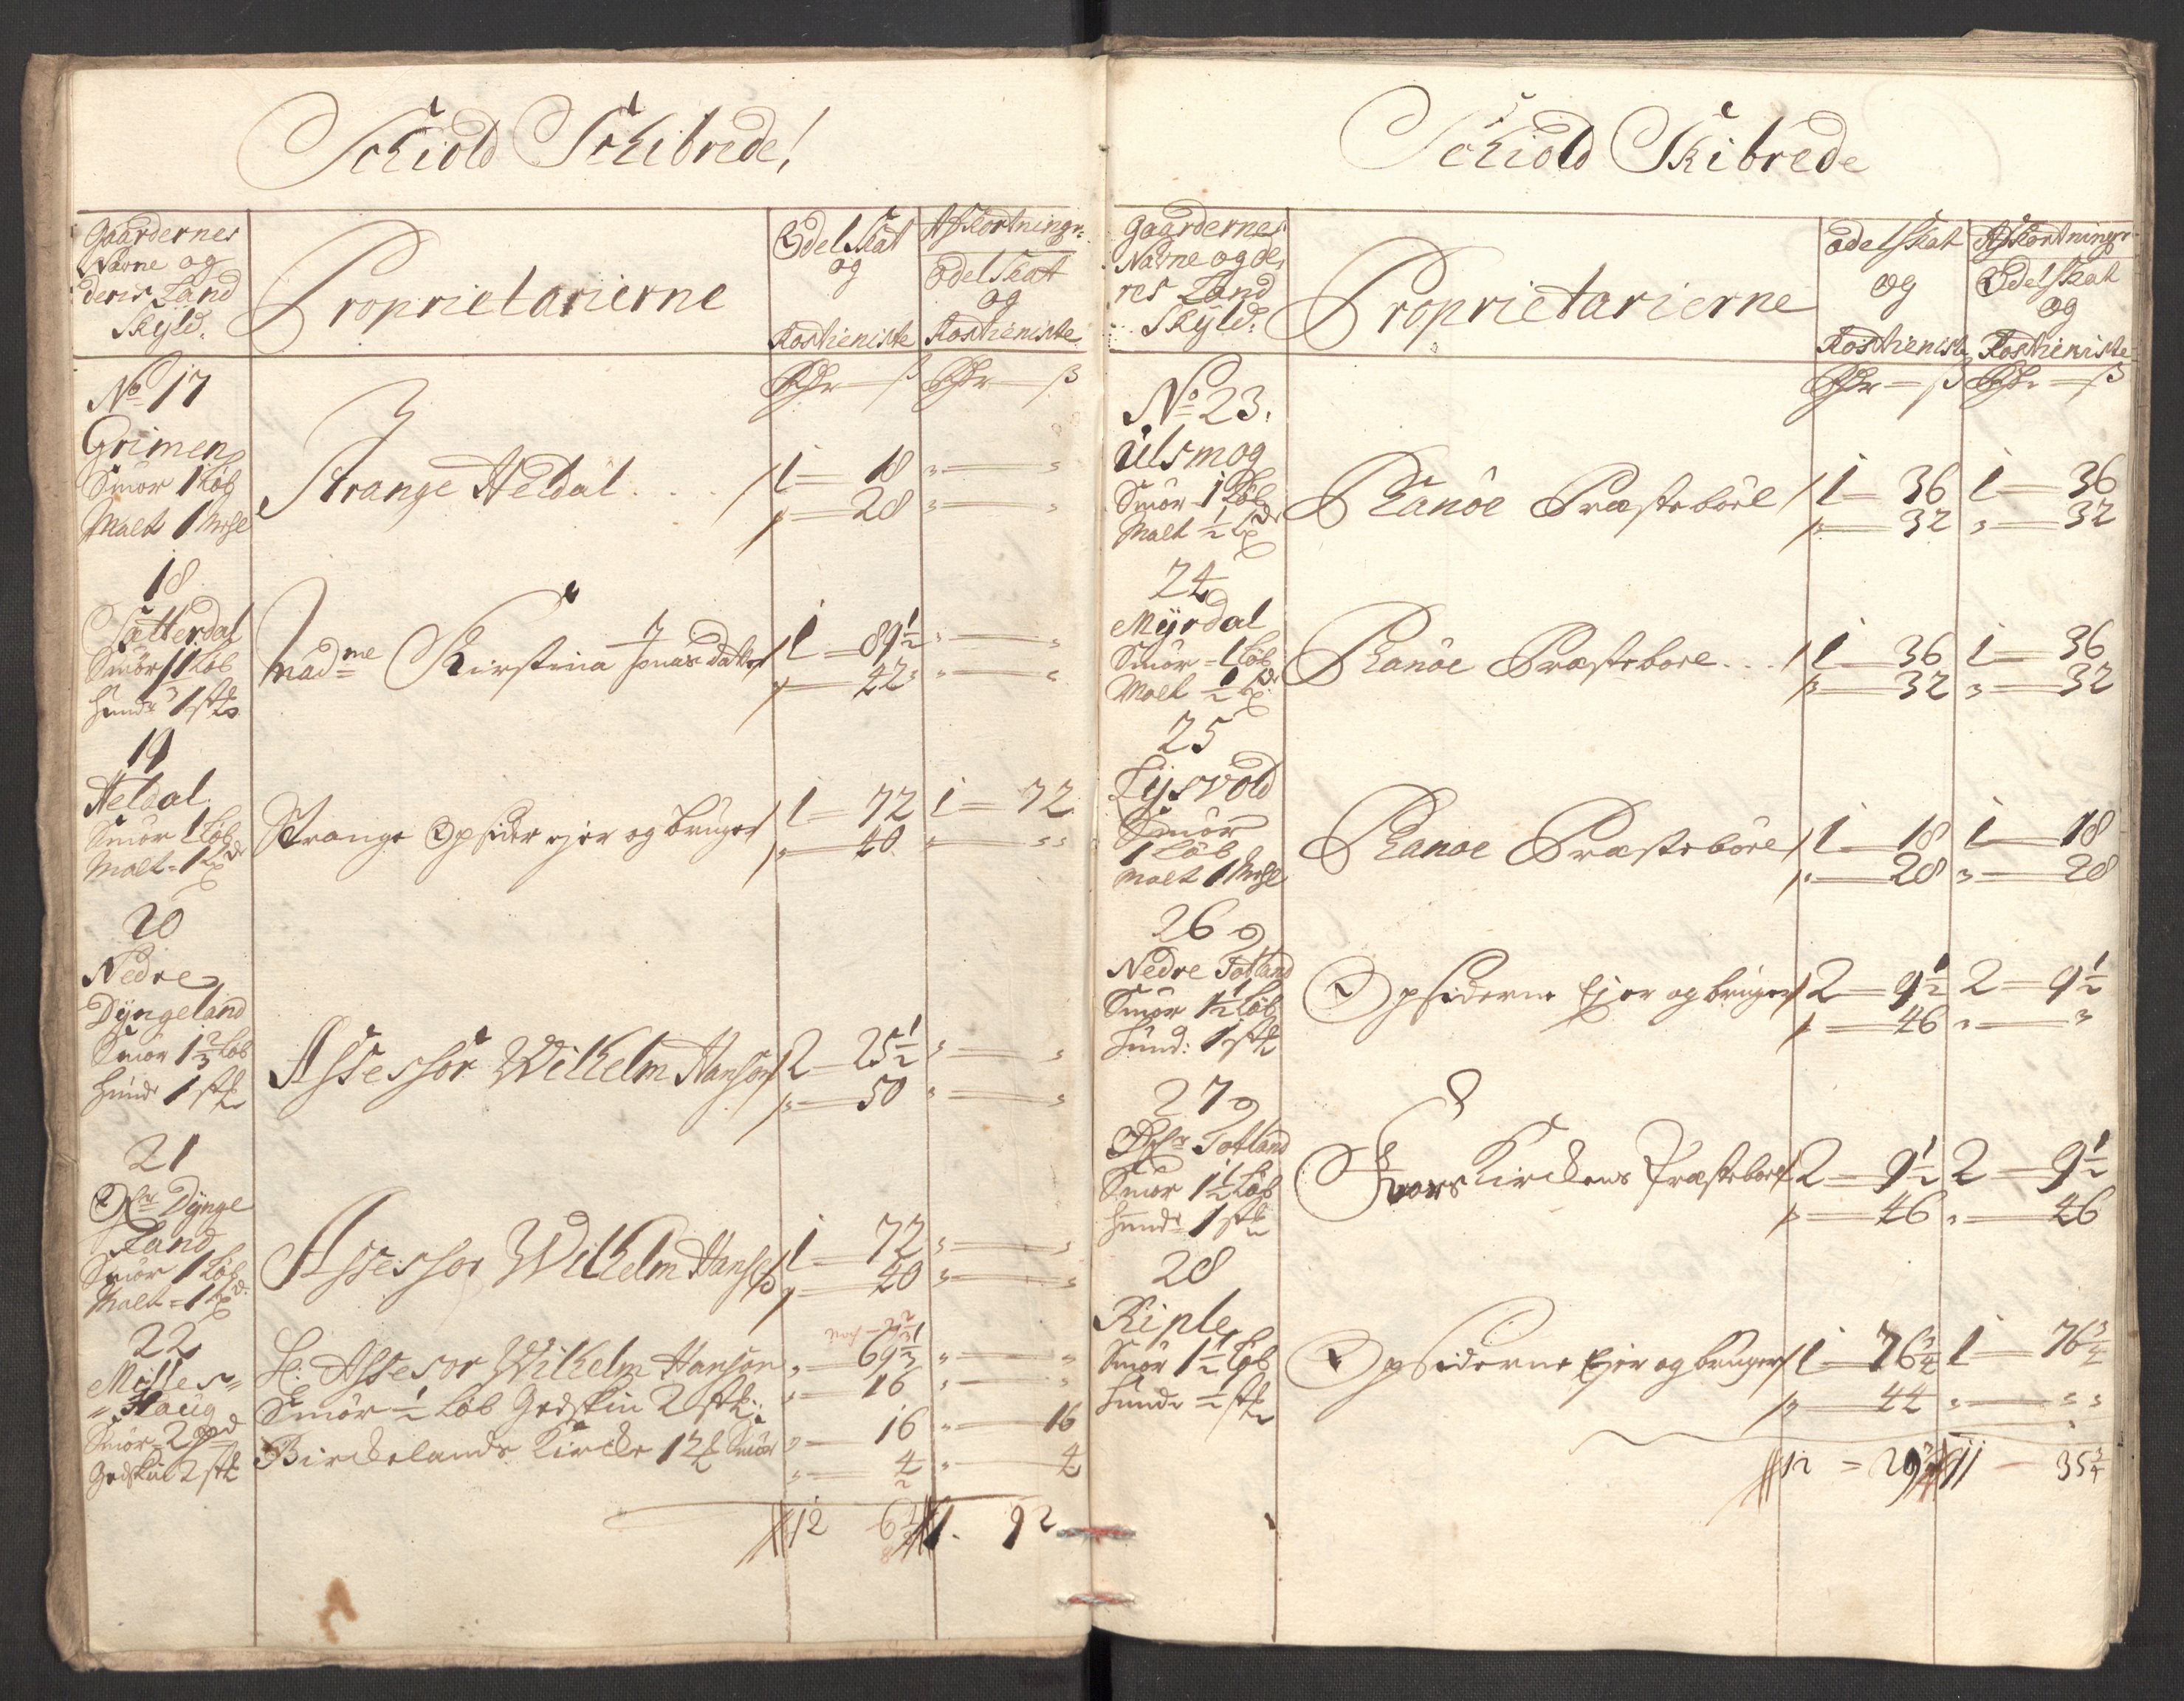 Schiold Schibrede!
Gaardernes
Nafne og
deris Land
Skyld.
Proprietarierne
Odel Skat
og
Rostieniste
Afkortning
odel Skatt
og
Rostieniste
Rdr — ß Rdr — ß
No 17
Grimen
Smør 1 Løb
Malt 1 Mæhl
Strange Heldal . . . 1 — 18 " — "
" — 28 " — "
18
Sætterdal
Smør 1 Løb
Huuder 1 stk
Mad me Kirstina Jonas datter 1 — 89½ " — "
" — 42 " — "
19
Heldal
Smør 1 Løb
Malt = 1 Lpd
Strange Opsidder ejer og bruger 1 — 72 1 — 72
" — 40 " — "
20
Nedre
Dÿngeland
Smør 1⅔ Løb
Huude 1 stk
Assessor Wilhelm Hanson 2 — 25½ " — "
" — 50 " — "
21
Øfr Dÿnge
Land
Smør 1 Løb
Malt = 1 Lpd
Assessor Wilhelm Hansen 1 — 72 " — "
" — 40 " — "
22
Milles=
=Haug
Smør = 2 Spd
Gedskin 2 stk
H. Assesor Wilhelm Hanson " — 69⅓ " — "
Smør ½ Løb Gedskin 2 stk: " — 16 " — "
Birckelands Kircke 12 Smør " — 16 " — 16
" — 4 " — 4
12 6½ 1. 92
Schiold Skibrede
Gaardernes
Nafne og de,
res Land
Skyld.
Proprietarierne
odelskat
og
Rostienist
Afkortninger
Odelskat
og
Rostieniste
Rdr — ß Rdr — ß
No 23.
Ulsmog
Smør 1 Løb
Malt ½ Lpd
Fanöe Præsteböel 1 — 36 1 — 36
" — 32 " — 32
24
Mÿrdal
Smør = 1 Løb
Malt ½ Lpd
Fanöe Præsteboel . . . 1 — 36 1 — 36
" — 32 " — 32
25
Lysvold
Smør
1 Løb
Malt 1 Mæhl
Fanöe Præsteböel 1 — 18 1 — 18
" — 28 " — 28
26
Nedre Totland
Smør 1½ Løb
Huud: 1 stk
Opsiderne Ejer og bruger 2 — 9½ 2 — 9½
" — 46 " — "
27
Øfr Totland
Smør 1½ Løb
Huude 1 stk
Kors Kirckens Præsteboel 2 — 9½ 2 — 9½
" — 46 " — 46
28
Riple
Smør 1½ Løb
Huude ½ stk
Opsiderne Ejer og bruger 1 — 76¾ 1 — 76¾
" — 44 " — "
12 = 29¾ 11 — 35¾